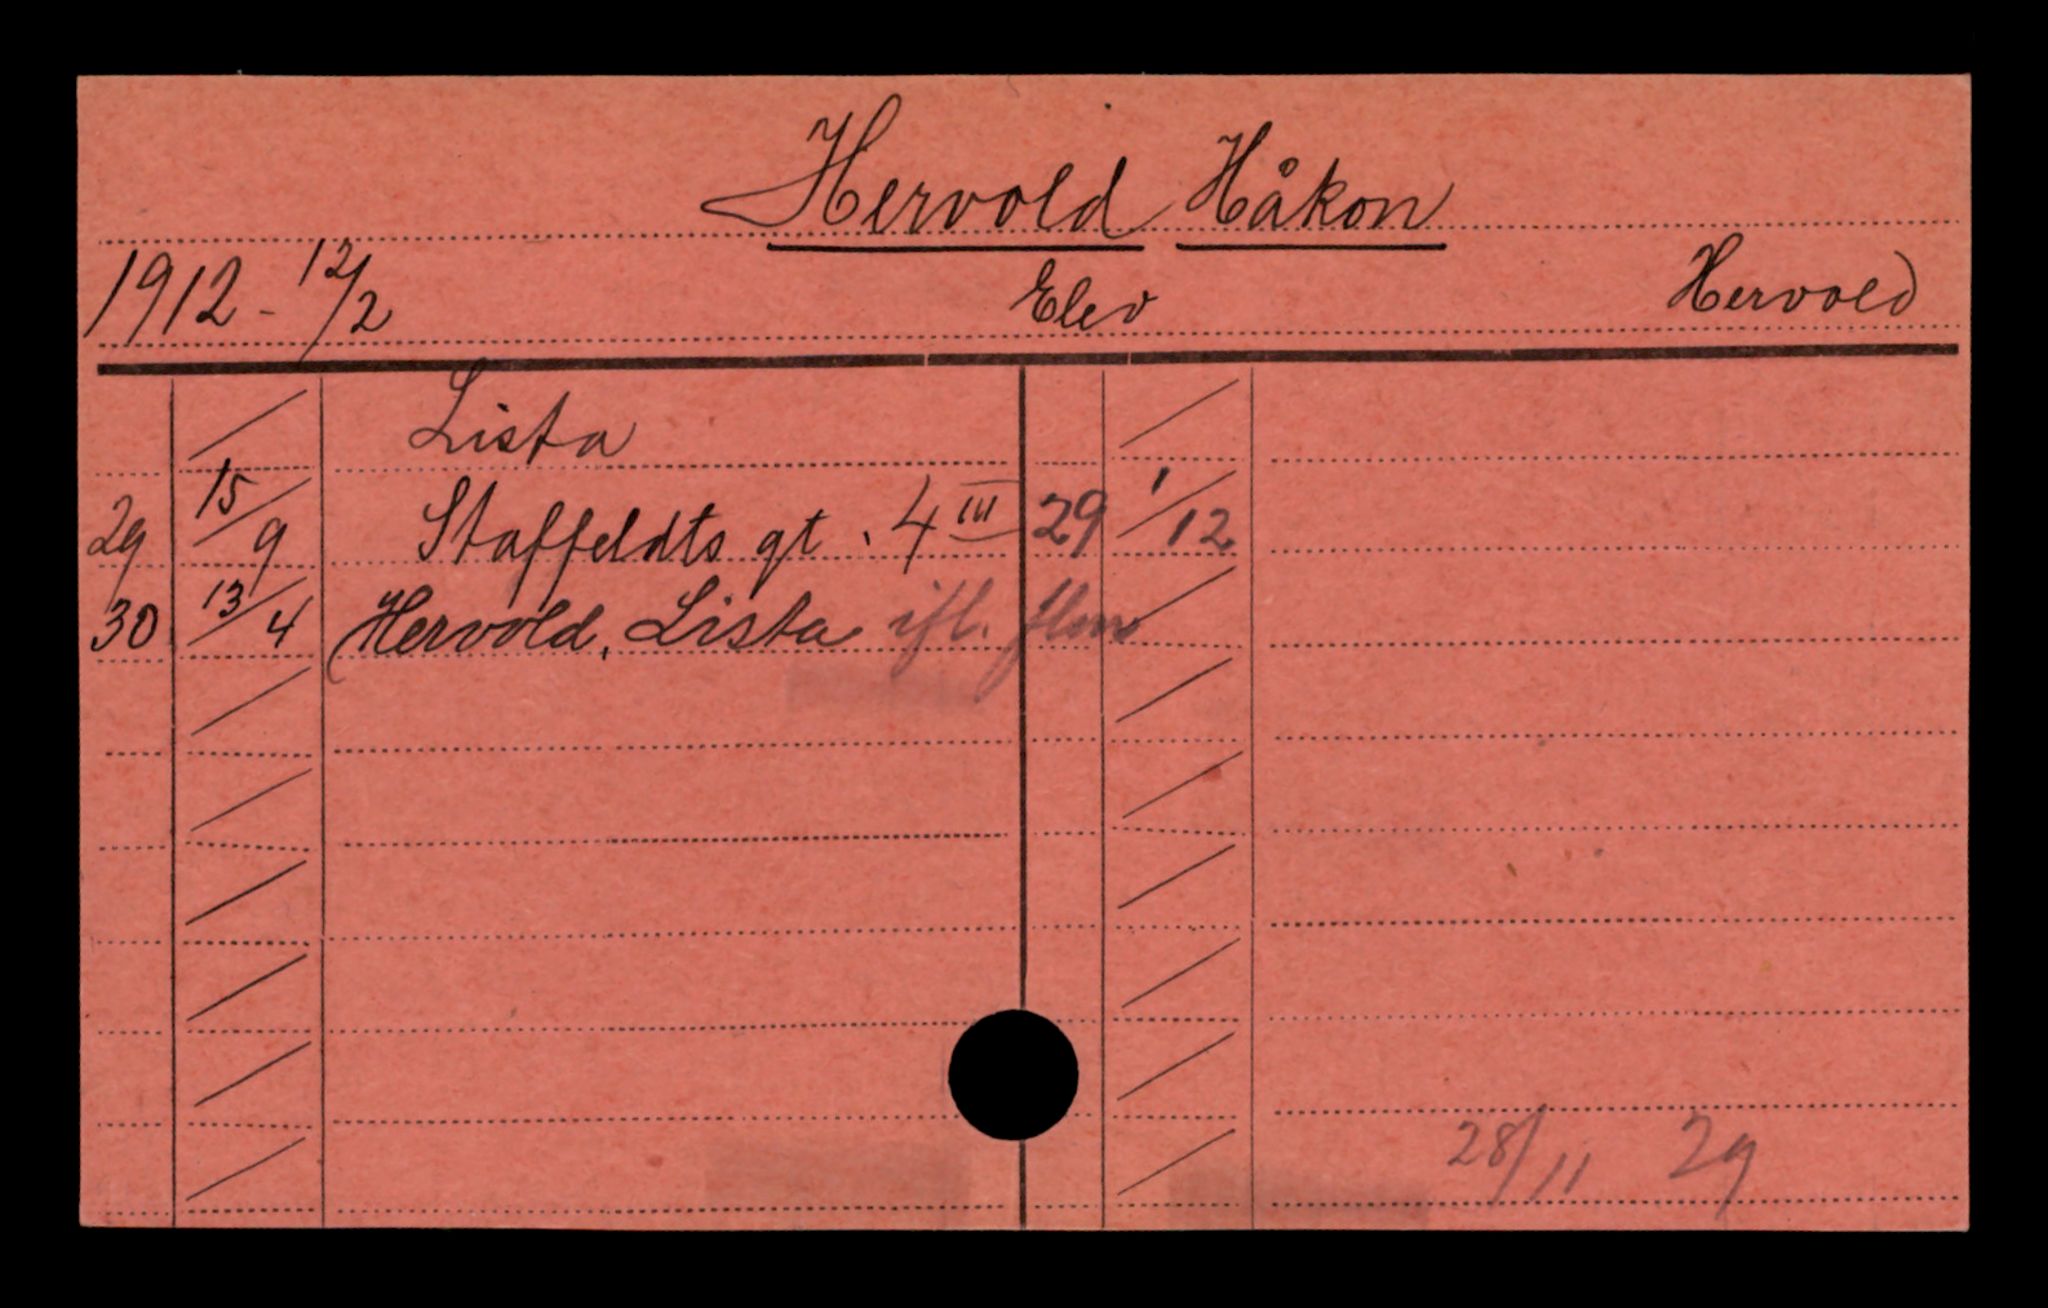 Hervold Håkon
1912 - 12/2 Elev Hervold
Lista
29 15/9 Staffeldts gt. 4 III 29 1/12
30 13/4 Hervold, Lista ifl.
28/11 29